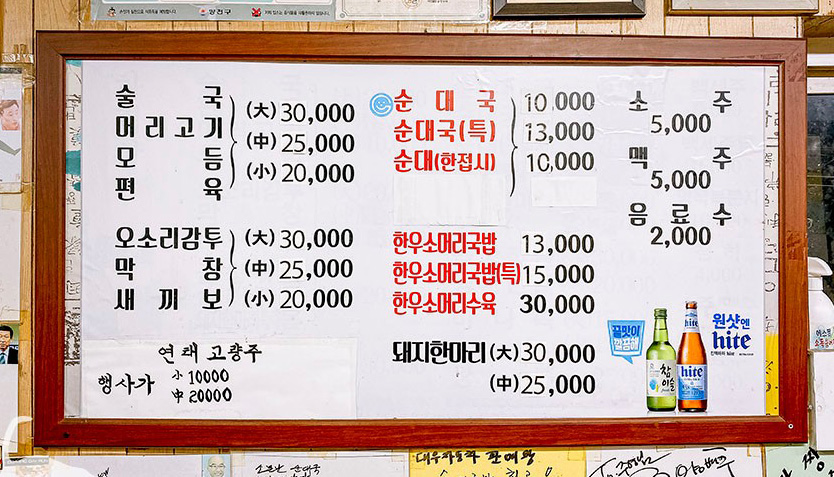 술 국
머리고기
모 듬
편 육
(大) 30,000
(中) 25,000
(小) 20,000
오소리감투
막 창
새 끼 보
(大) 30,000
(中) 25,000
(小) 20,000
연태 고량주
행사가 小 10000
中 20000
순 대 국 10,000
순대국(특) 13,000
순대(한접시) 10,000
한우소머리국밥 13,000
한우소머리국밥(특) 15,000
한우소머리수육 30,000
돼지한마리 (大) 30,000
(中) 25,000
소 주
5,000
맥 주
5,000
음 료 수
2,000
꿀맛이
깔끔해
참이슬
hite
hite
원샷엔
hite